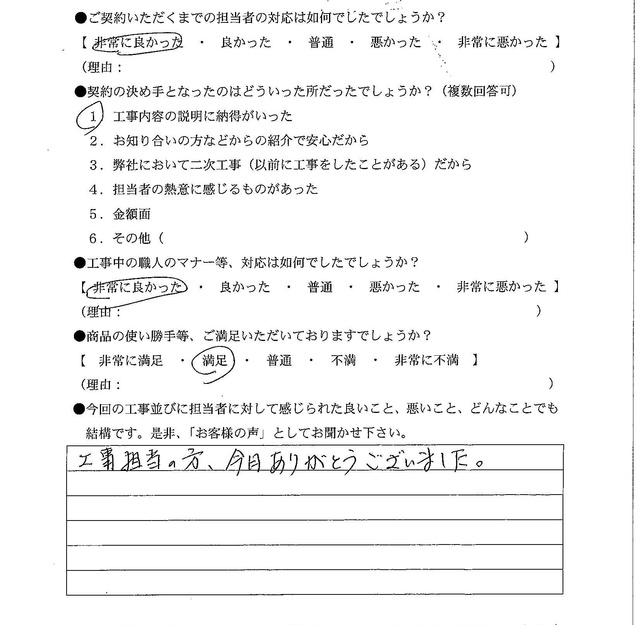 ●ご契約いただくまでの担当者の対応は如何でしたでしょうか？
【 非常に良かった ・ 良かった ・ 普通 ・ 悪かった ・ 非常に悪かった 】
（理由： ）
●契約の決め手となったのはどういった所だったでしょうか？（複数回答可）
１．工事内容の説明に納得がいった
２．お知り合いの方などからの紹介で安心だから
３．弊社において二次工事（以前に工事をしたことがある）だから
４．担当者の熱意に感じるものがあった
５．金額面
６．その他（ ）
●工事中の職人のマナー等、対応は如何でしたでしょうか？
【 非常に良かった ・ 良かった ・ 普通 ・ 悪かった ・ 非常に悪かった 】
（理由： ）
●商品の使い勝手等、ご満足いただいておりますでしょうか？
【 非常に満足 ・ 満足 ・ 普通 ・ 不満 ・ 非常に不満 】
（理由： ）
●今回の工事並びに担当者に対して感じられた良いこと、悪いこと、どんなことでも
結構です。是非、「お客様の声」としてお聞かせ下さい。
工事担当の方、今日ありがとうございました。